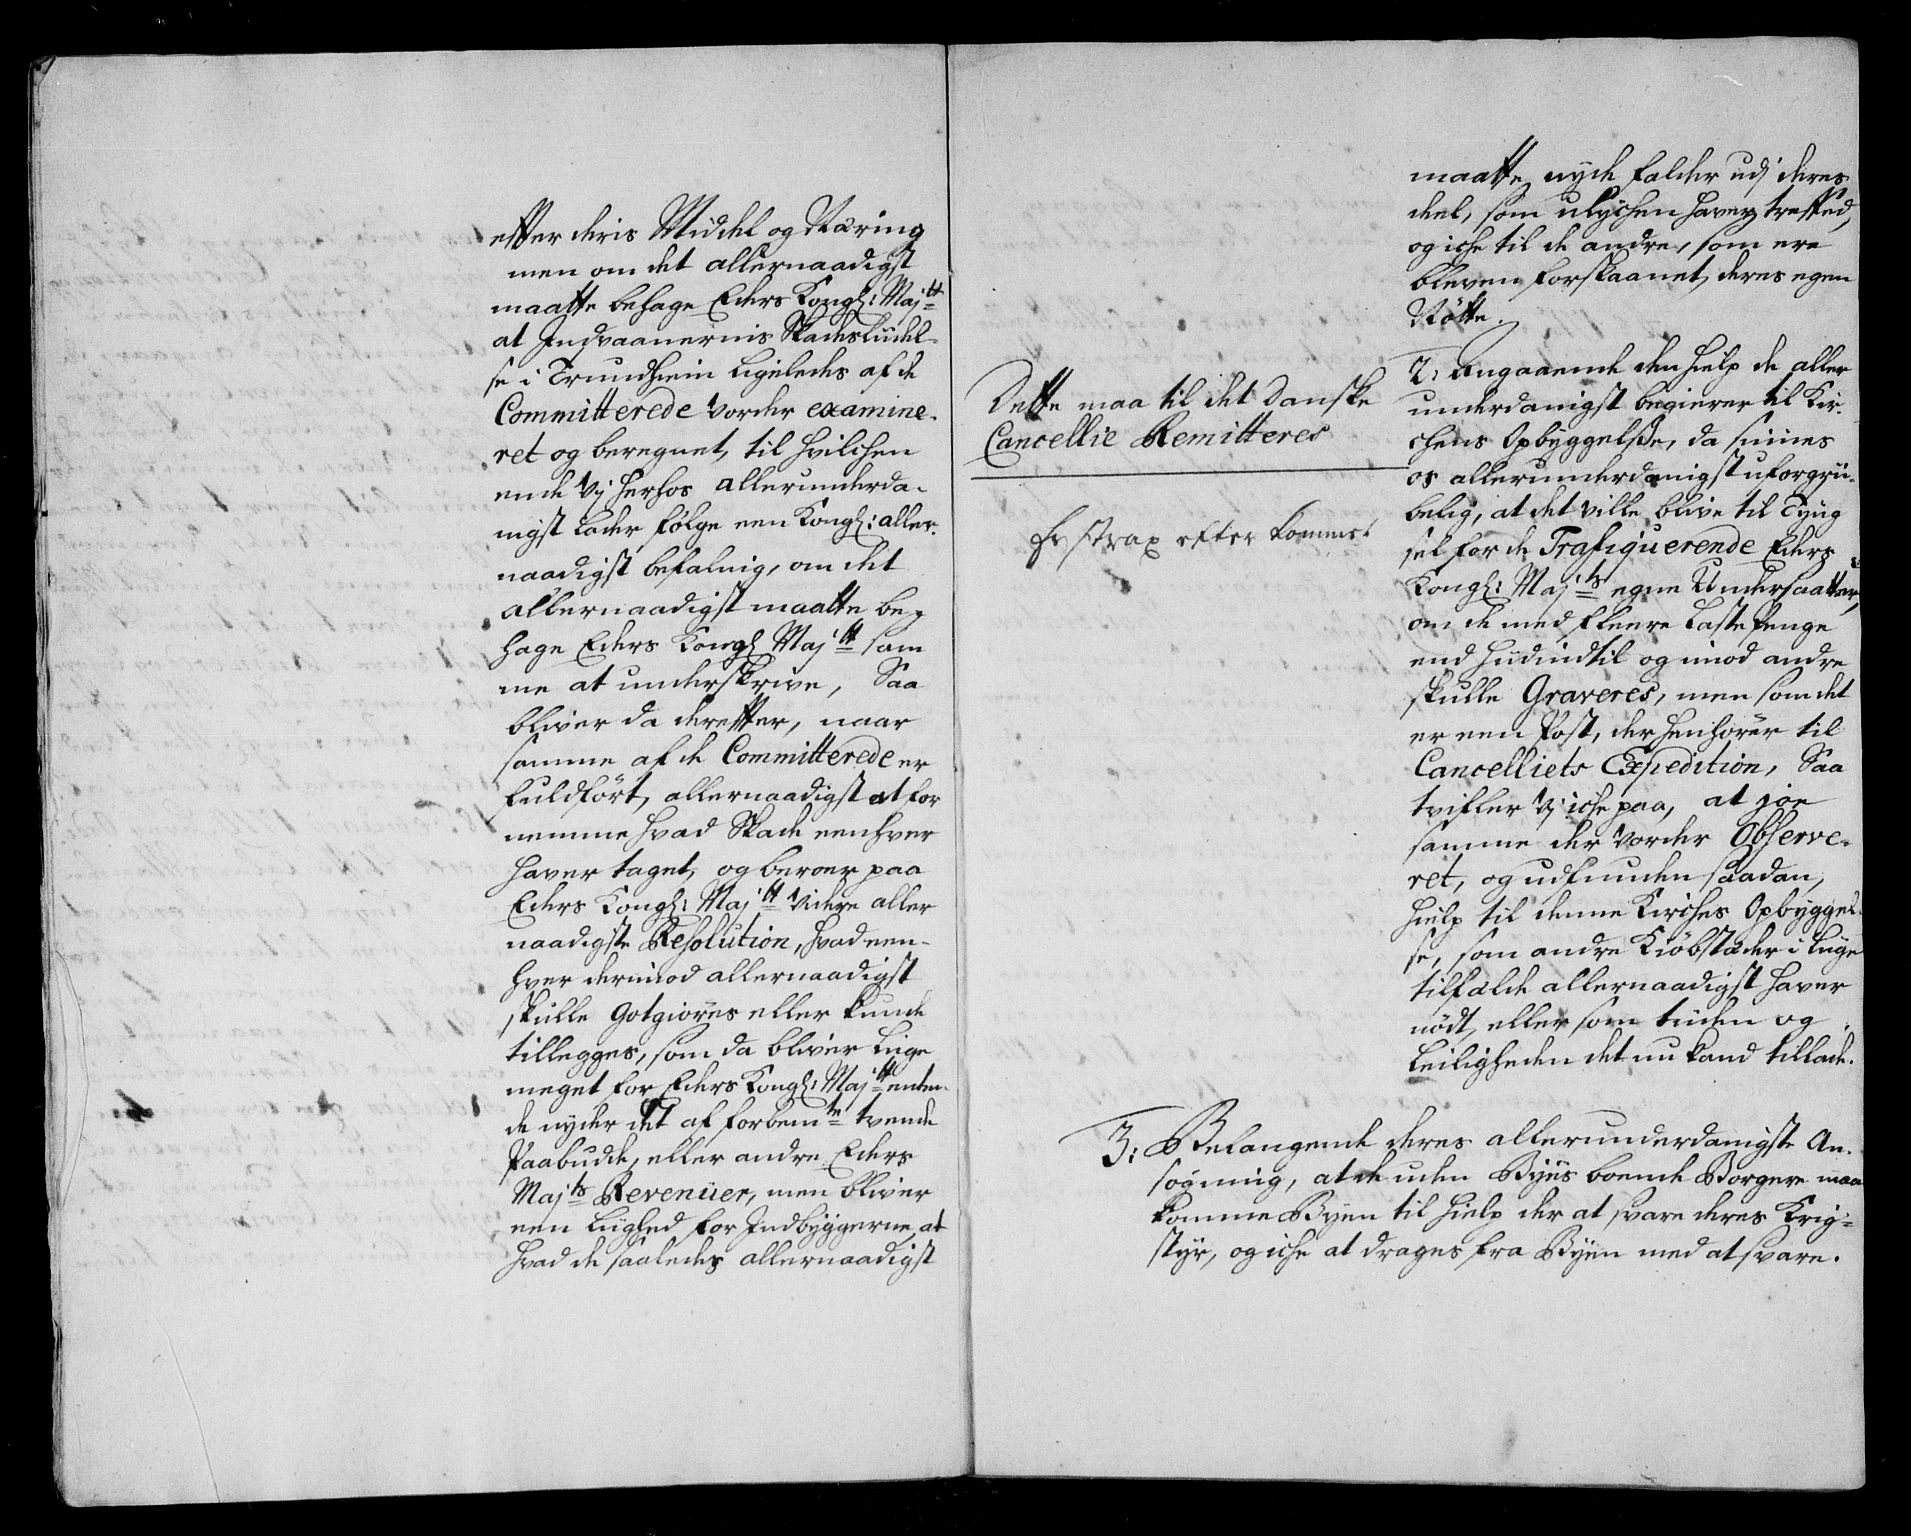 effter deris Middel og Næring
men om det allernaadigst
maatte behage Eders Kongl: Maj:tt
at Indvaanernis Skadesliidel-
se i Trundhiem ligeledes af de
Committerede vorder examine-
ret og beregnet, til hvilchen
ende vj herhos allerunderda-
nigst lader følge een Kongl: aller-
naadigst befalnig, om det
allernaadigst maatte be-
hage Eders Kongl Maj:tt sam
me at underskrive, Saa
bliver da dereffter, naar
samme af de Committerede er
fuldført, allernaadigst at for
nemme hvad Skade eenhver
haver taget, og beroer paa
Eders Kongl: Maj:tt videre aller
naadigste Resolution, hvad een-
hver derimod allernaadigst
skulle Gotgiøres eller kunde
tillegges, som da bliver liige
meget for Eders Kongl: Maj:tt enten
de nyder det af forbem:te tvende
Paabudde, eller andre Eders
Maj:ts Revenüer, men bliver
een liighed for Indbyggerne, at
hvad de saaledes allernaadigst
maatte nyde falder udj deres
deel, som ulychen haver treffed,
og iche til de andre, som ere
bleven forskaanet, deres egen
Nötte.
Dette maa til det Danske
Cancellie Remitteres
strax efter kommet
2: Angaaende den hielp de aller
underdanigst begierer til Kir-
chens Opbyggelsse, da siunes
os allerunderdanigst uforgrii-
belig, at det ville blive til Tyng
sel for de Trafiquerende Eders
Kongl: Maj:ts egne Undersaatter,
om de med fleere Laste Penge
end hiidindtil og imod andre
skulle Graveres, men som det
er een Post, der henhører til
Cancelliets Expedition, Saa
tvifler vj iche paa, at joe
samme der vorder Observe-
ret, og udfunden saadan,
hielp til denne Kirches Opbyggel-
se, som andre Kiøbstæder i liige
tilfælde allernaadigst haver
nødt, eller som tiiden og
Leiligheden det nu kand tillade.
3: Belangende deres allerunderdanigste An-
søgning, at de uden Byiis boende Borgere maa
komme Byen til hielp der at svare deres Krig-
styr, og iche at drages fra Byen med at svare.